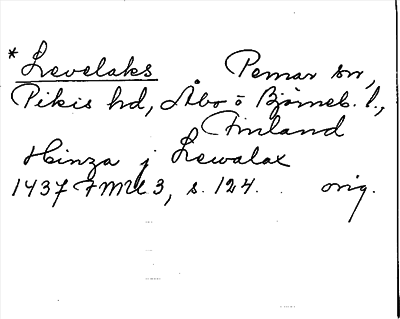 * Levelaks . Pemar sn,
Pikis hd, Åbo o Björneb. l.,
Finland
Hinza j Lewalax
1437 FMU 3, s. 124. orig.